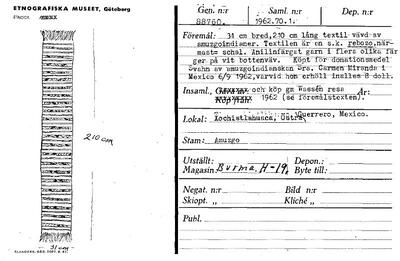 ETNOGRAFISKA MUSEET, Göteborg
210 cm
31 cm
Gen. n:r Saml. n:r Dep. n:r
88760. 1962.70.1.
Föremål: 31 cm bred, 210 cm lång textil vävd av
amuzgoindianer. Textilen är en s.k. rebozo, när-
mast= schal. Anilinfärgat garn i flera olika fär
ger på vit bottenväv. Köpt för donationsmedel
av amuzgoindianskan Sra. Carmen Miranda i
Mexico 6/9 1962, varvid hon erhöll inalles 8 doll.
Insaml., och köp gm Wassén resa År:
Köp från: 1962 (se föremålstexten).
Lokal: Xochistlahuaca, Guerrero, Mexico.
Stam: Amuzgo
Utställt: Depon.:
Magasin: Burma, H-19, Byte till:
Negat. n:r Bild n:r
Skiopt. „ Kliché „
Publ.